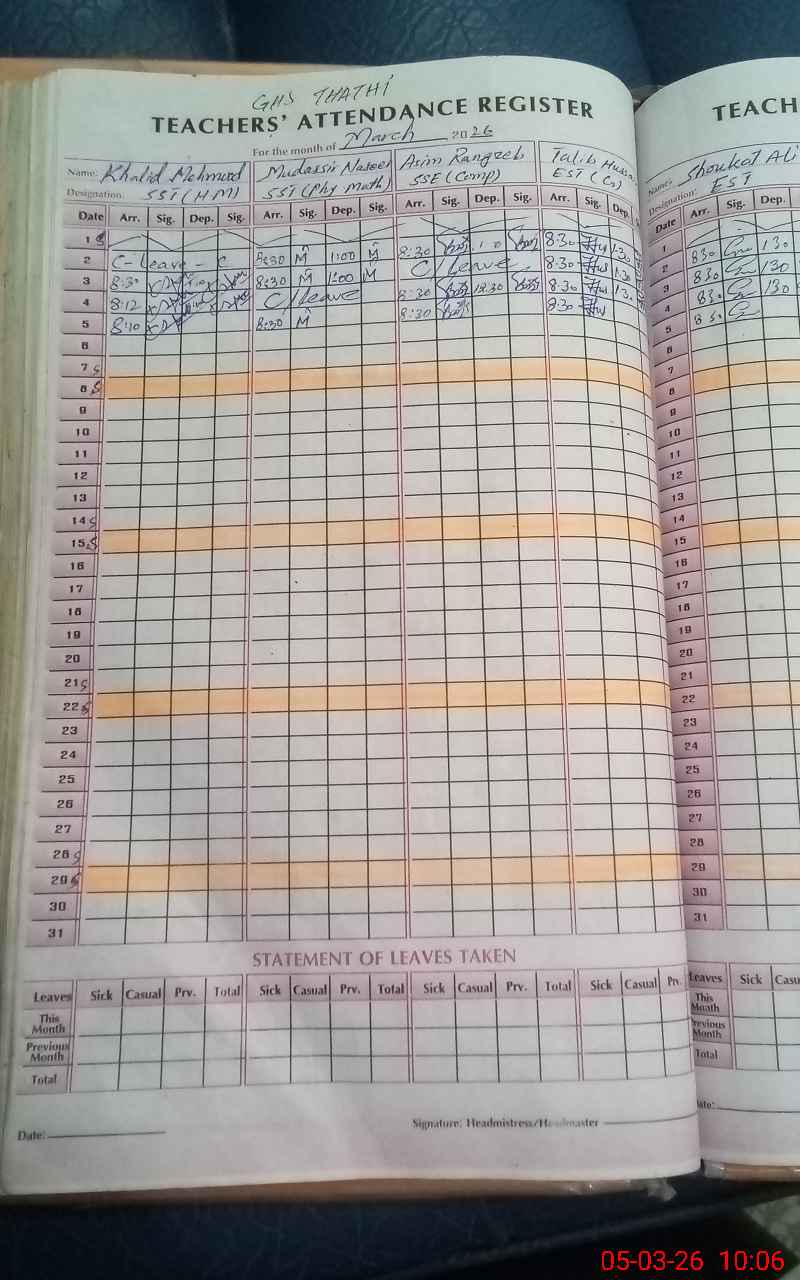 GHS THATHI
TEACHERS' ATTENDANCE REGISTER
TEACH
For the month of March 2026
Name: Khalid Mehmood Mudassir Naseer Asim Rangzeb Talib Hussa
Name: Shoukat Ali
Designation: SST (HM) SST (Phy Math) SSE (Comp) EST (Cs)
Designation: EST
Date Arr. Sig. Dep. Sig. Arr. Sig. Dep. Sig. Arr. Sig. Dep. Sig. Arr. Sig. Dep. S
Date Arr. Sig. Dep.
1 S
2 C-leave C 8:30 M 1:00 M 8:30 1:0 8:30 1:30
3 8:30 8:30 M 1:00 M C/leave 8:30 1:30
4 8:12 C/leave 8:30 12:30 8:30 1:30
5 8:10 8:30 M 8:30 8:30
6
7 S
8 S
9
10
11
12
13
14 S
15 S
16
17
18
19
20
21 S
22 S
23
24
25
26
27
28 S
29 S
30
31
1
2 830 130
3 830 130
4 830 130
5 830
6
7
8
9
10
11
12
13
14
15
16
17
18
19
20
21
22
23
24
25
26
27
28
29
30
31
STATEMENT OF LEAVES TAKEN
Leaves Sick Casual Prv. Total Sick Casual Prv. Total Sick Casual Prv. Total Sick Casual Prv.
This Month
Previous Month
Total
Leaves Sick Casu
This Month
Previous Month
Total
Date:
Signature: Headmistress/Headmaster
ate:
05-03-26 10:06